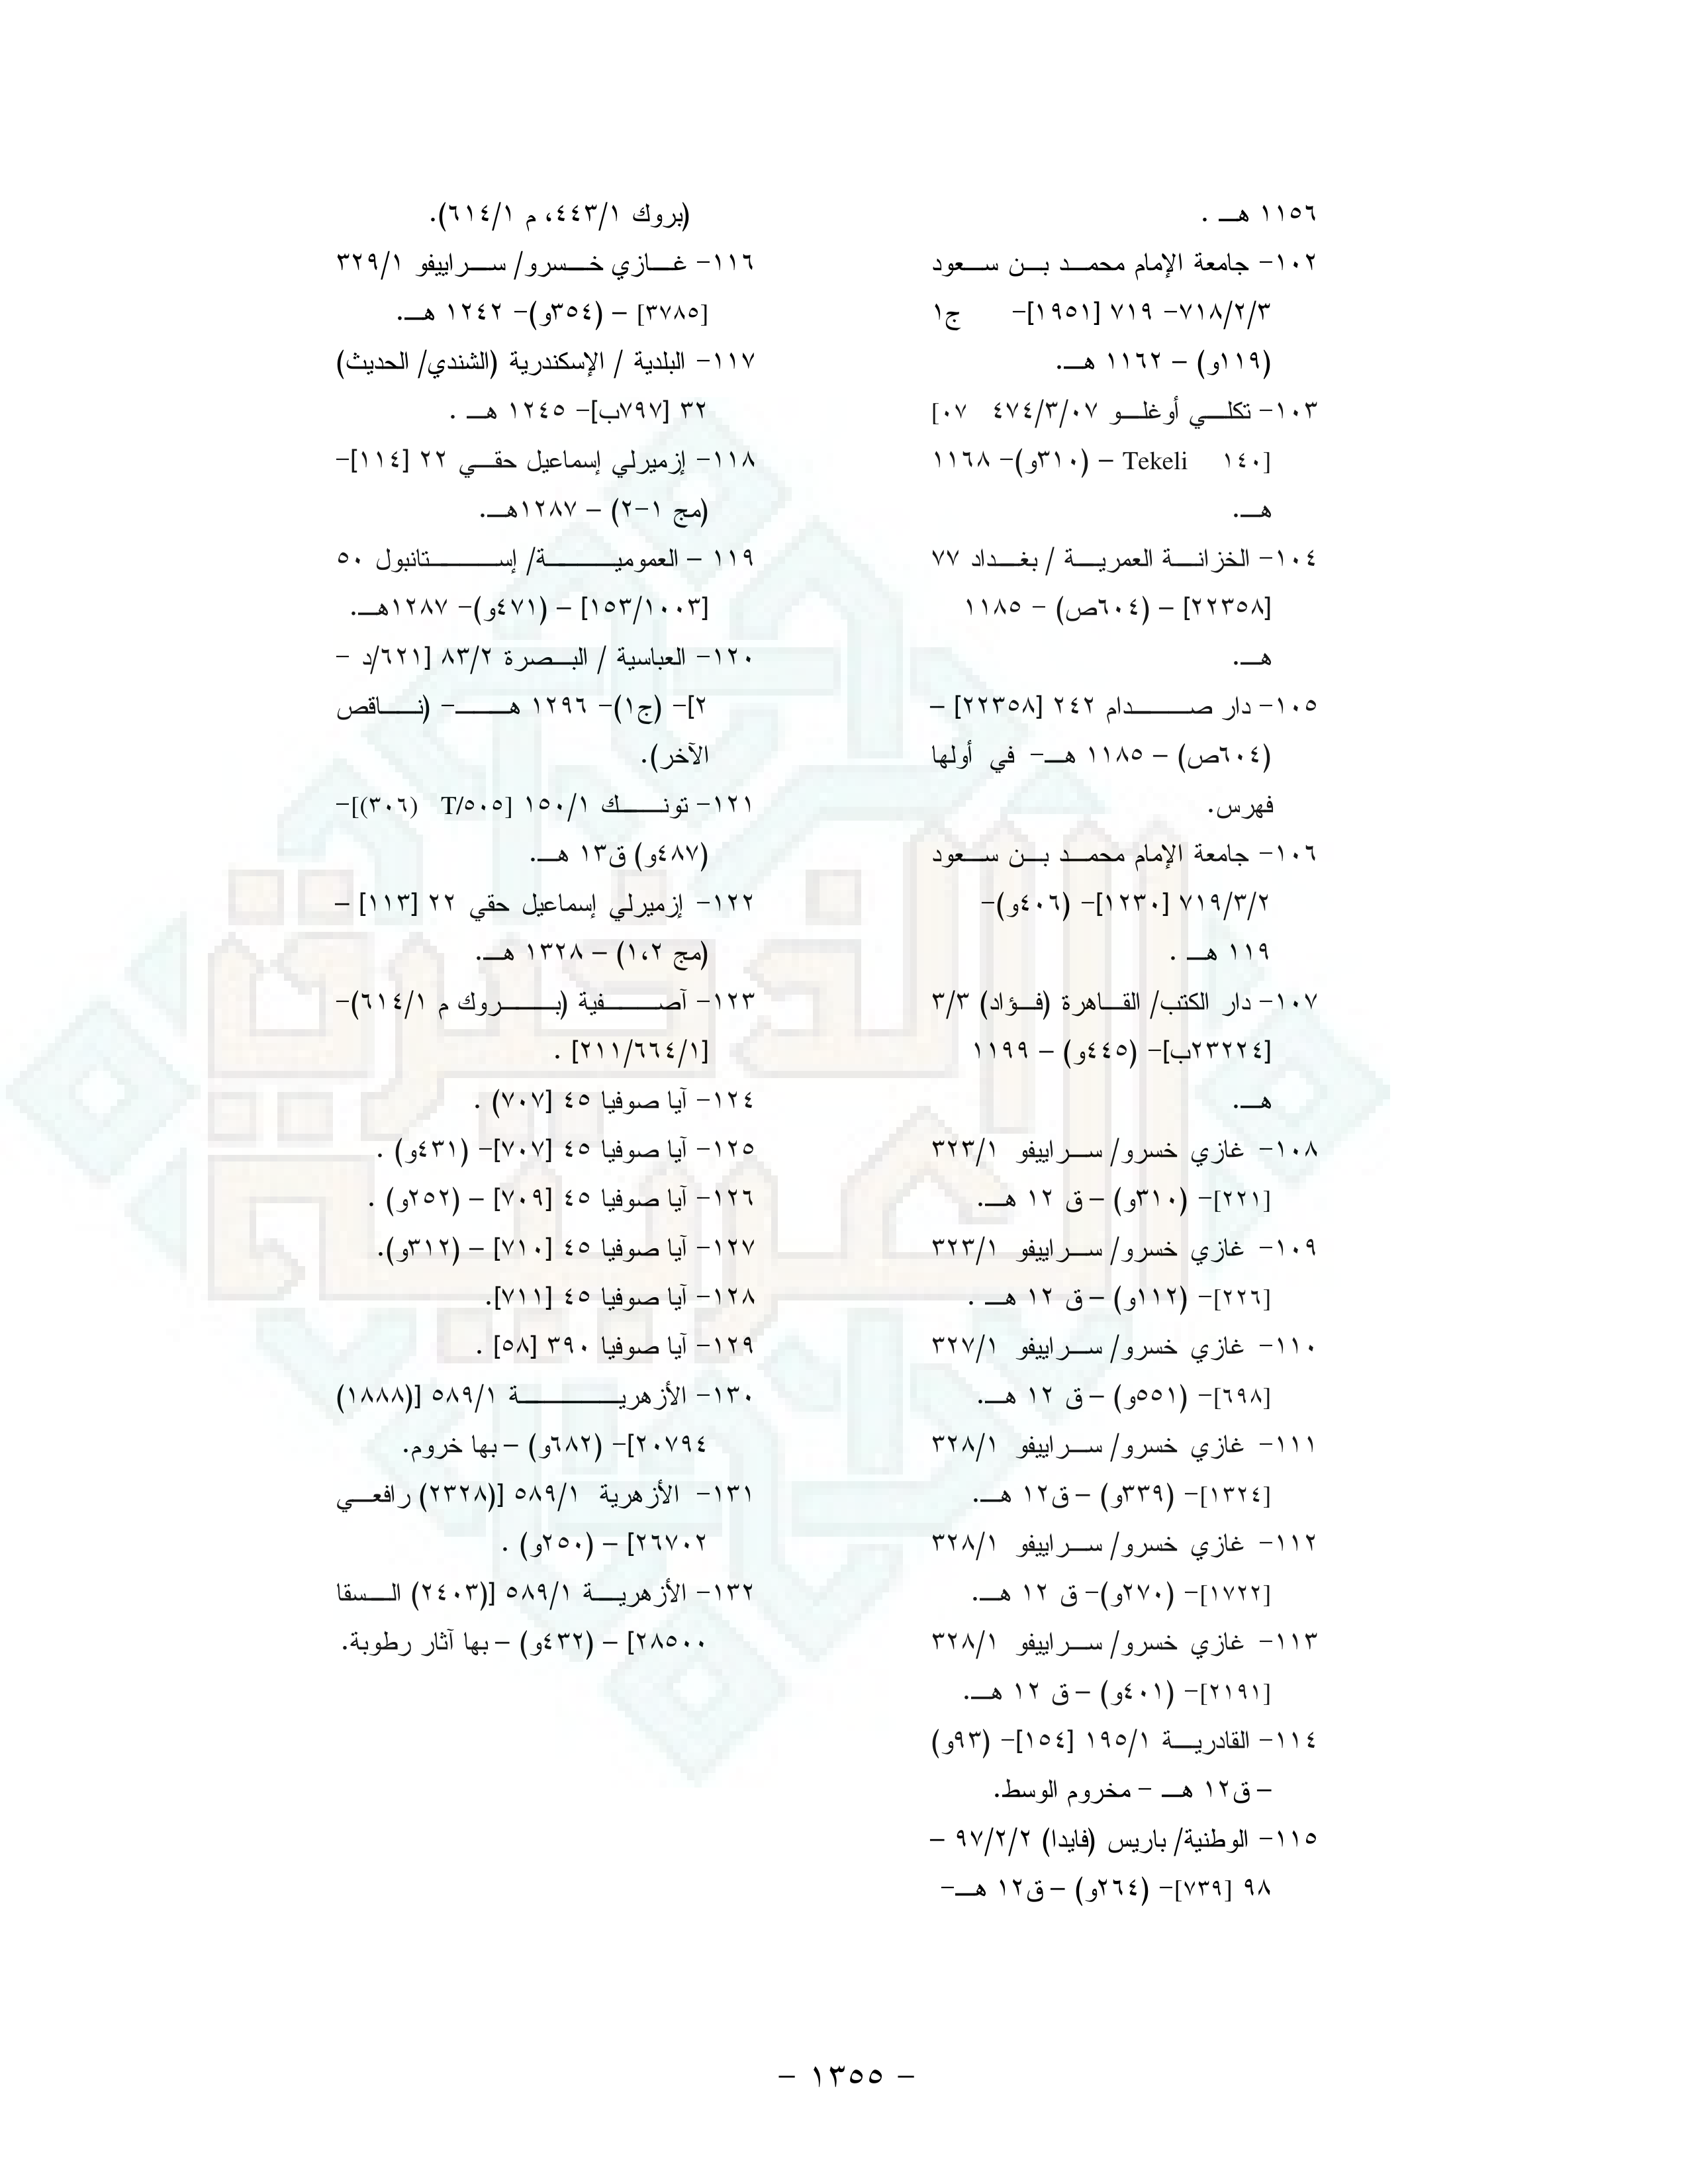 ١١٥٦ هـ .
١٠٢- جامعة الإمام محمد بن سعود
٧١٨/٢/٣- ٧١٩ [١٩٥١]- ج١
(١١٩و) – ١١٦٢ هـ.
١٠٣- تكلي أوغلو ٤٧٤/٣/٠٧ ٠٧]
[١٤٠ Tekeli – (٣١٠و)- ١١٦٨
هـ.
١٠٤- الخزانة العمرية / بغداد ٧٧
[٢٢٣٥٨] – (٦٠٤ص) - ١١٨٥
هـ.
١٠٥- دار صدام ٢٤٢ [٢٢٣٥٨] –
(٦٠٤ص) – ١١٨٥ هـ- في أولها
فهرس.
١٠٦- جامعة الإمام محمد بن سعود
٧١٩/٣/٢ [١٢٣٠]- (٤٠٦و)-
١١٩ هـ .
١٠٧- دار الكتب/ القاهرة (فؤاد) ٣/٣
[٢٣٢٢٤ب]- (٤٤٥و) – ١١٩٩
هـ.
١٠٨- غازي خسرو/ سراييفو ٣٢٣/١
[٢٢١]- (٣١٠و) – ق ١٢ هـ.
١٠٩- غازي خسرو/ سراييفو ٣٢٣/١
[٢٢٦]- (١١٢و) – ق ١٢ هـ .
١١٠- غازي خسرو/ سراييفو ٣٢٧/١
[٦٩٨]- (٥٥١و) – ق ١٢ هـ.
١١١- غازي خسرو/ سراييفو ٣٢٨/١
[١٣٢٤]- (٣٣٩و) – ق١٢ هـ.
١١٢- غازي خسرو/ سراييفو ٣٢٨/١
[١٧٢٢]- (٢٧٠و)- ق ١٢ هـ.
١١٣- غازي خسرو/ سراييفو ٣٢٨/١
[٢١٩١]- (٤٠١و) – ق ١٢ هـ.
١١٤- القادرية ١٩٥/١ [١٥٤]- (٩٣و)
– ق١٢ هـ - مخروم الوسط.
١١٥- الوطنية/ باريس (فايدا) ٩٧/٢/٢ –
٩٨ [٧٣٩]- (٢٦٤و) – ق١٢ هـ-
(بروك ٤٤٣/١، م ٦١٤/١).
١١٦- غازي خسرو/ سراييفو ٣٢٩/١
[٣٧٨٥] – (٣٥٤و)- ١٢٤٢ هـ.
١١٧- البلدية / الإسكندرية (الشندي/ الحديث)
٣٢ [٧٩٧ب]- ١٢٤٥ هـ .
١١٨- إزميرلي إسماعيل حقي ٢٢ [١١٤]-
(مج ١-٢) – ١٢٨٧هـ.
١١٩ – العمومية/ إستانبول ٥٠
[١٥٣/١٠٠٣] – (٤٧١و)- ١٢٨٧هـ.
١٢٠- العباسية / البصرة ٨٣/٢ [٦٢١/د -
٢]- (ج١)- ١٢٩٦ هـ- (ناقص
الآخر).
١٢١- تونك ١٥٠/١ [T/٥٠٥ (٣٠٦)]-
(٤٨٧و) ق١٣ هـ.
١٢٢- إزميرلي إسماعيل حقي ٢٢ [١١٣] –
(مج ١،٢) – ١٣٢٨ هـ.
١٢٣- آصفية (بروك م ٦١٤/١)-
[٢١١/٦٦٤/١] .
١٢٤- آيا صوفيا ٤٥ [٧٠٧) .
١٢٥- آيا صوفيا ٤٥ [٧٠٧]- (٤٣١و) .
١٢٦- آيا صوفيا ٤٥ [٧٠٩] – (٢٥٢و) .
١٢٧- آيا صوفيا ٤٥ [٧١٠] – (٣١٢و).
١٢٨- آيا صوفيا ٤٥ [٧١١].
١٢٩- آيا صوفيا ٣٩٠ [٥٨] .
١٣٠- الأزهرية ٥٨٩/١ [(١٨٨٨)
٢٠٧٩٤]- (٦٨٢و) – بها خروم.
١٣١- الأزهرية ٥٨٩/١ [(٢٣٢٨) رافعي
٢٦٧٠٢] – (٢٥٠و) .
١٣٢- الأزهرية ٥٨٩/١ [(٢٤٠٣) السقا
٢٨٥٠٠] – (٤٣٢و) – بها آثار رطوبة.
- ١٣٥٥ -